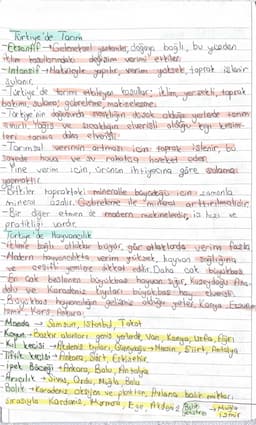 Türkiye'de Tarım
-Ekstansif →Geleneksel yöntemler, doğaya bağlı, bu yüzden
iklim koşullarındaki değişim verimi etkiler.
-İntansif →Makineyle yapılır, verim yüksek, toprak işlenir
sulanır.
-Türkiye'de tarımı etkileyen koşullar: iklim, yerşekli, toprak
bakımı, sulama, gübreleme, makineleşme.
-Türkiye'nin doğusunda olduğu yerlerde tarım
sınırlı. Yağış ve sıcaklığın elverişli olduğu kesim-
lerde tarıma daha elverişli.
-Tarımsal verimin artması için toprak işlenir, bu
sayede hava ve su rahatça hareket eder.
-Yine verim için, ürünün ihtiyacına göre sulama
yapılmalıdır.
-Bitkiler topraktaki mineralle büyüdüğü için zamanla
mineral azalır. Gübreleme ile mineral arttırılmalıdır.
-Bir diğer etmen de modern makinelerdir, iş hızı ve
pratikliği vardır.
Türkiye'de Hayvancılık
-İklime bağlı otlaklar büyür, gür otlaklarda verim fazla
-Modern hayvancılıkta verim yüksek, hayvan sağlığına
ve çeşitli yemlere dikkat edilir. Daha çok büyükbaş.
-En çok beslenen büyükbaş hayvan sığır, Kuzeydoğu Ana-
dolu ve Karadeniz kıyıları büyükbaş elverişli.
-Büyükbaş hayvancılığın gelişmiş olduğu yerler, Konya, Erzurum
İzmir, Kars, Ankara.
Manda → Samsun, İstanbul, Tokat
Koyun →Bozkır alanları geniş yerlerde, Van, Konya, Urfa, Ağrı
Kıl keçisi →Akdeniz Mersin, Siirt, Antalya
Tiftik keçisi →Ankara, Siirt, Eskişehir.
İpek Böceği →Ankara, Bolu, Antalya
Arıcılık → Sivas, Ordu, Muğla, Bolu
Balık →Karadeniz oksijen ve plankton,
Sırasıyla Karadeniz, Marmara, Ege, Akdeniz Balık → Muğla
İzmir